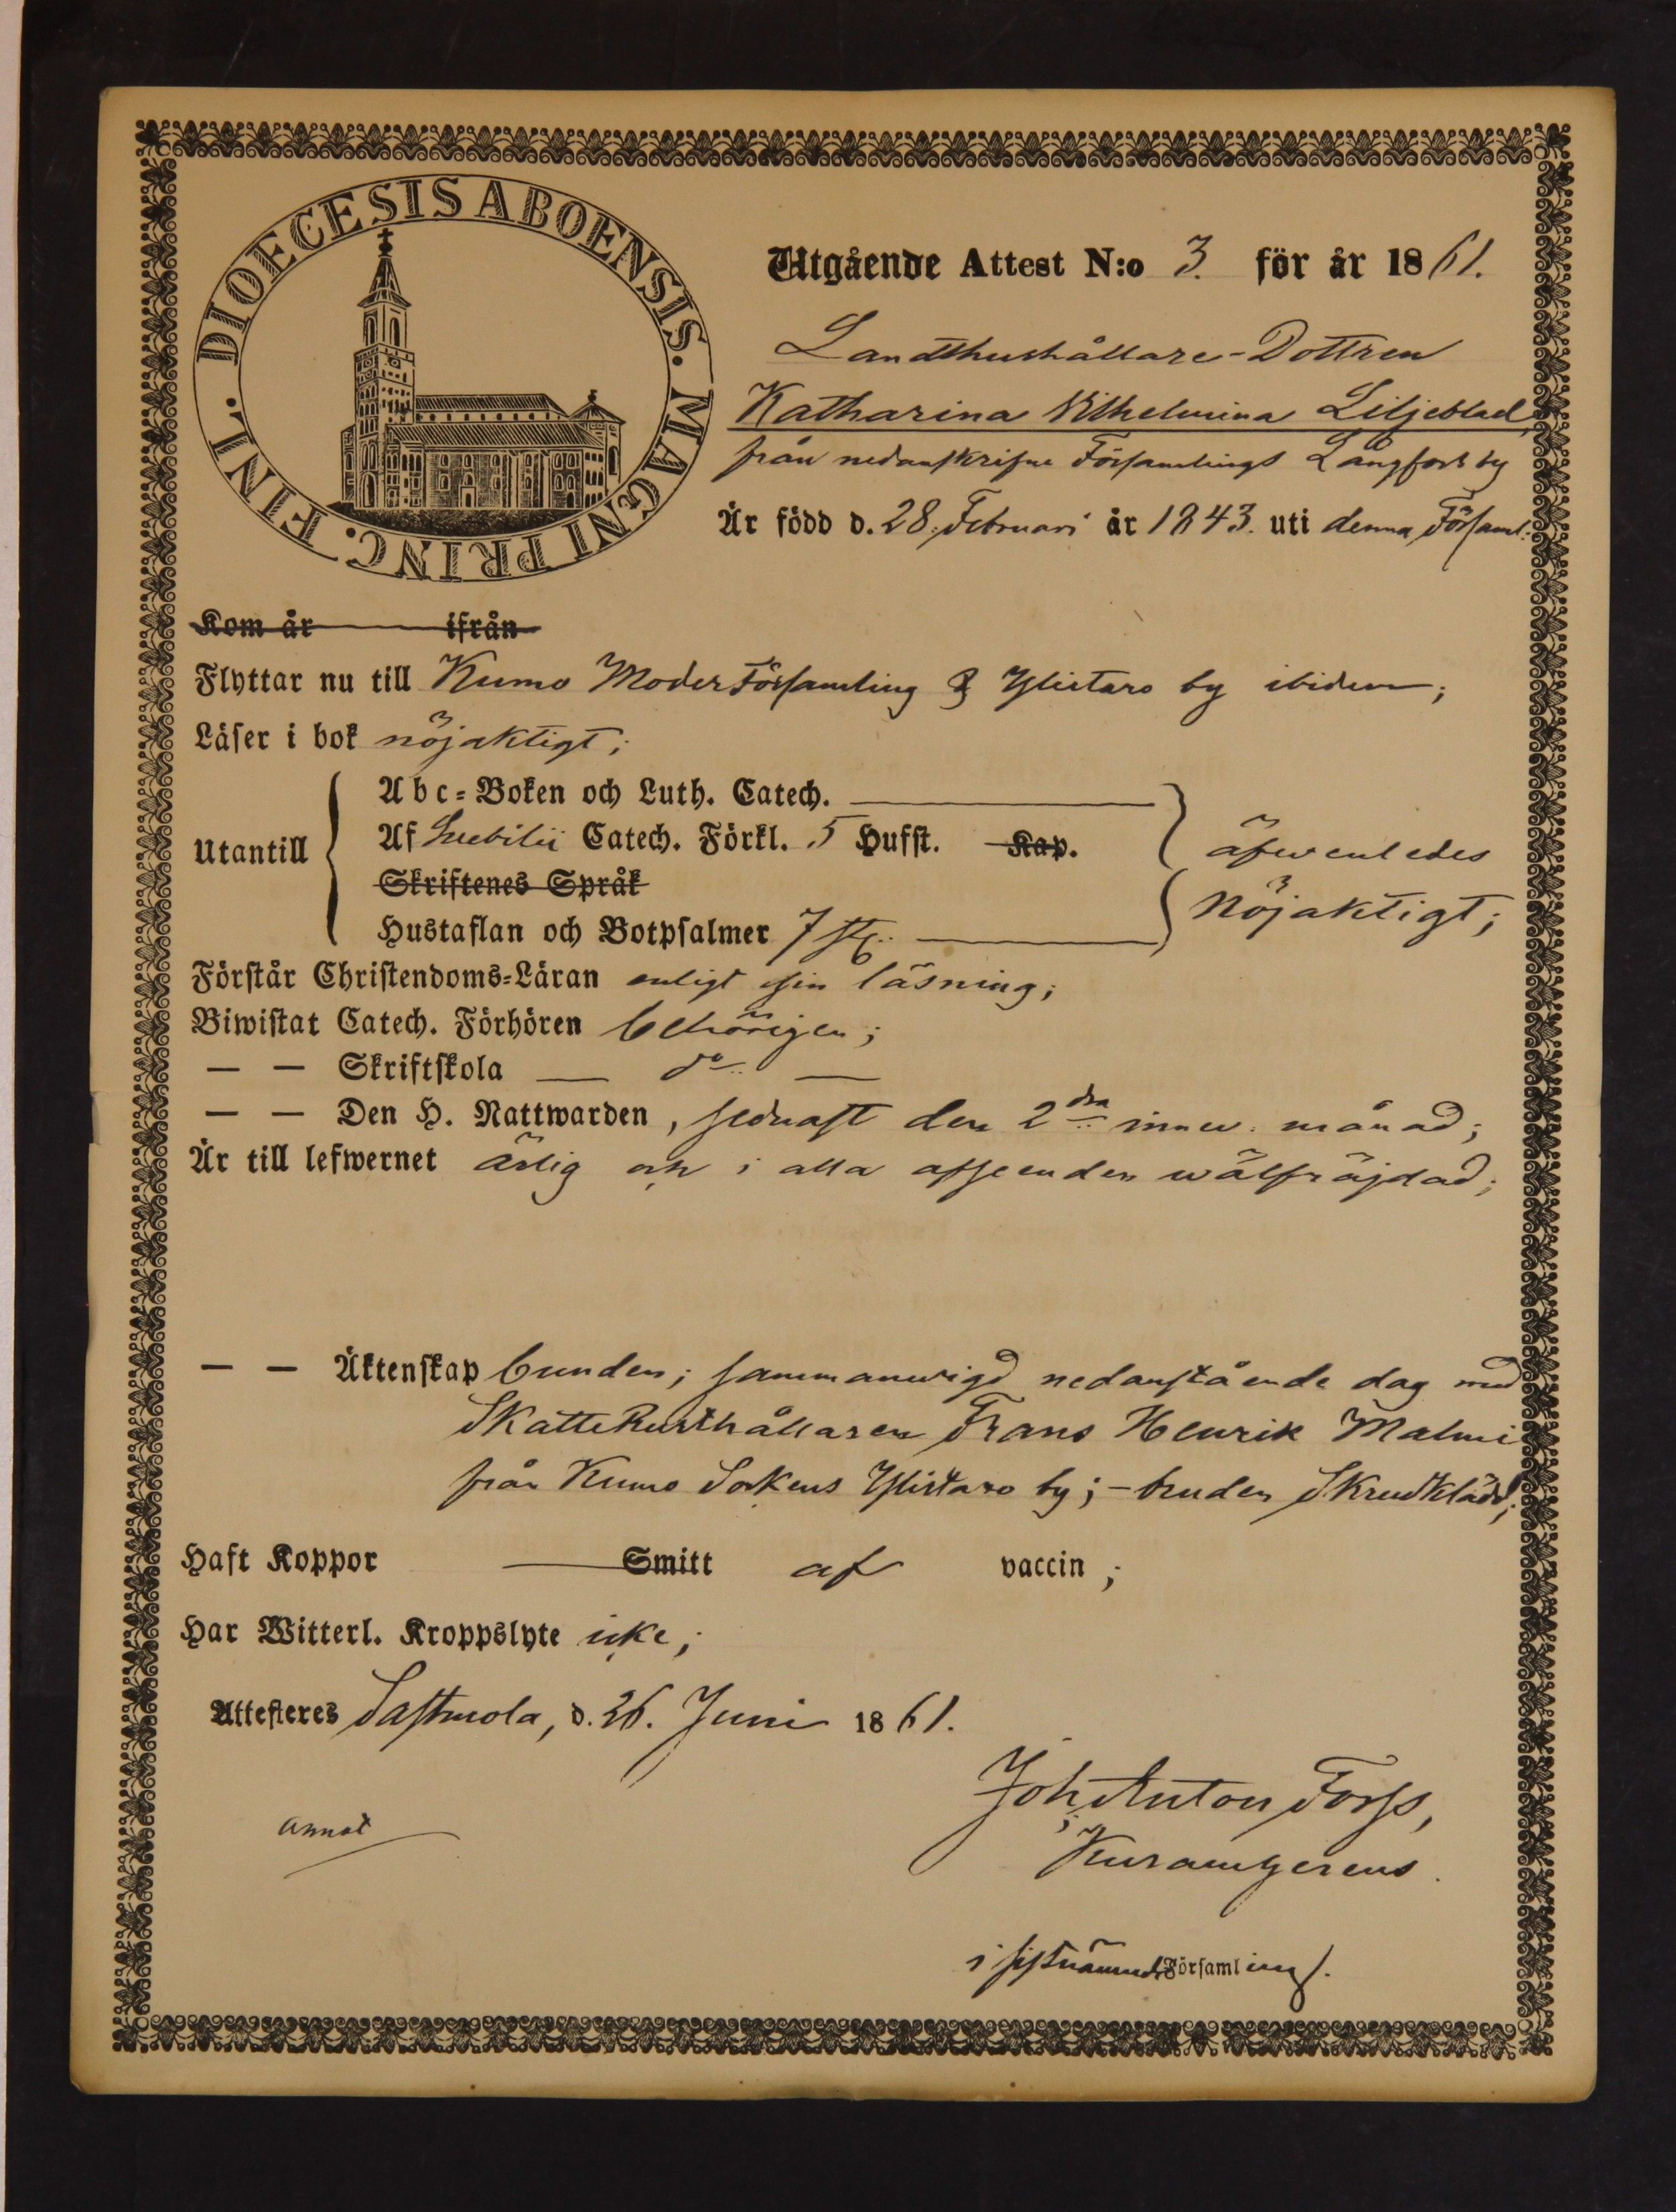 DIOECESIS ABOENSIS. MAGNI PRINC. FINL.
Utgående Attest N:o 3. för år 1861.
Landthushållare-Dottren
Katharina Vilhelmina Liljeblad,
från nedanskrifne Församlings Långfors by
Är född d. 28. Februari år 1843. uti denna Församl:
Kom år ifrån
Flyttar nu till Kumo Moder Församling & Ylistaro by ibidem;
Läser i bok nöjaktigt;
Abc-Boken och Luth. Catech.
Utantill
Af Svebilii Catech. Förkl. 5 Hufst. Kap.
äfwenledes
Skriftenes Språk
nöjaktigt;
Hustaflan och Botpsalmer 7 st.
Förstår Christendoms-Läran enligt sin läsning;
Biwistat Catech. Förhören behörigen;
— — Skriftskola — do —
— — Den H. Nattwarden, sednast den 2dra innev. månad;
Är till lefwernet ärlig och i alla afseenden wälfräjdad;
— — Äktenskap bunden; sammanwigd nedanstående dag med
Skatte Rusthållaren Frans Henrik Malmi
från Kumo Sockens Ylistaro by; – bruden Skrudklädd;
Haft Koppor Smitt af vaccin;
Har Witterl. Kroppslyte icke;
Attesteres Sastmola, d. 26. Juni 1861.
Joh. Anton Forss,
annot
Kuramgerens.
i sistnämnde Församling.